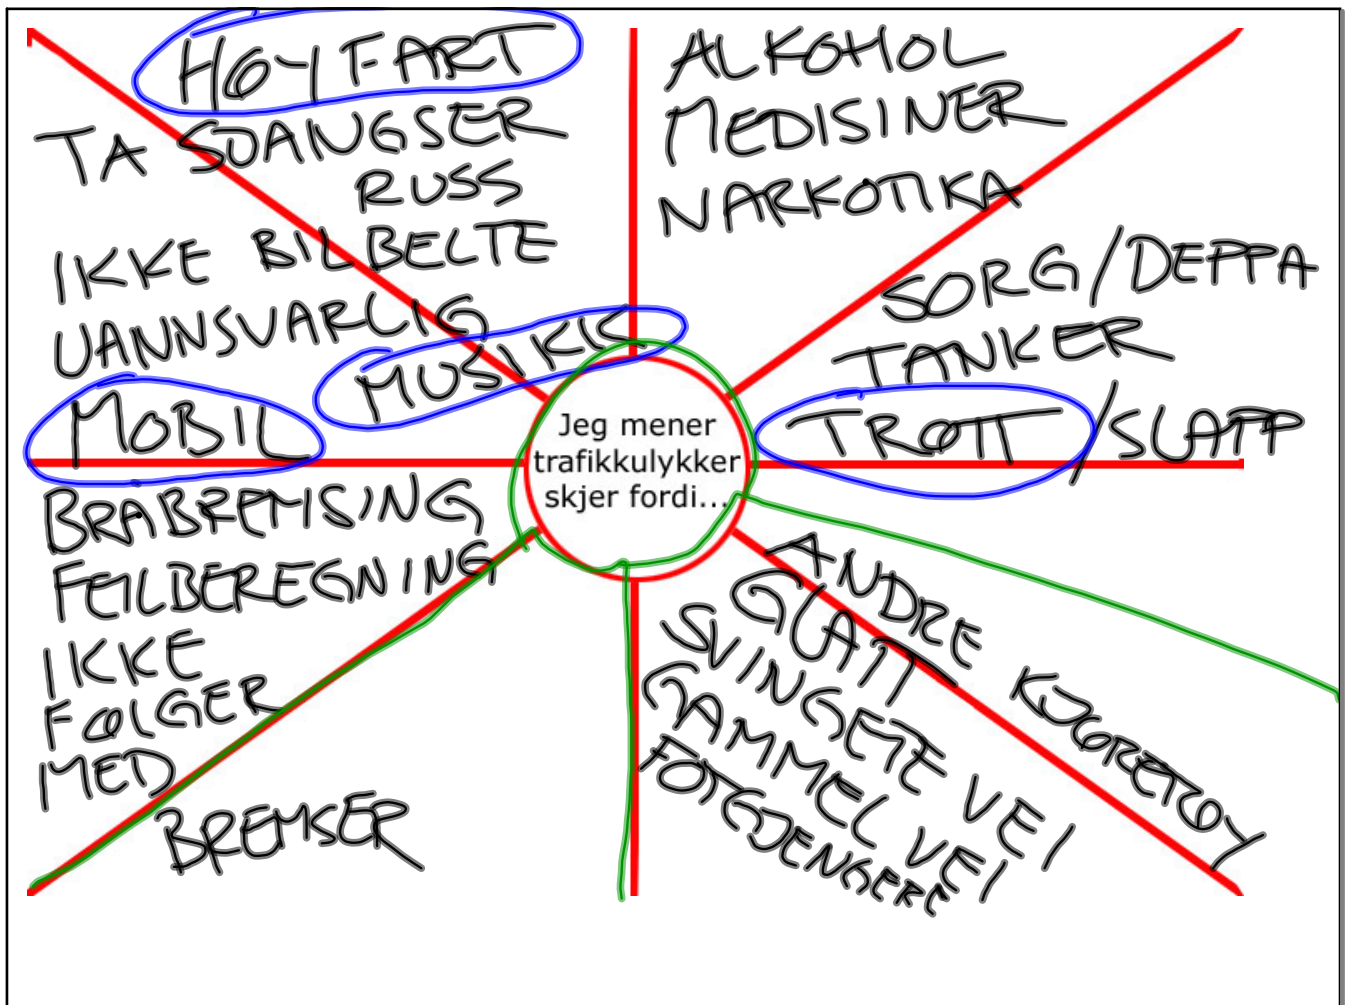 HØY FART
TA SJANGSER
RUSS
IKKE BILBELTE
UANNSVARLIG
MUSIKK
MOBIL
ALKOHOL
MEDISINER
NARKOTIKA
SORG/DEPPA
TANKER
TRØTT/SLAPP
Jeg mener
trafikkulykker
skjer fordi...
BRABREMSING
FEILBEREGNING
IKKE
FØLGER
MED
BREMSER
ANDRE KJØRETØY
GLATT
SVINGETE VEI
GAMMEL VEI
FOTGJENGERE